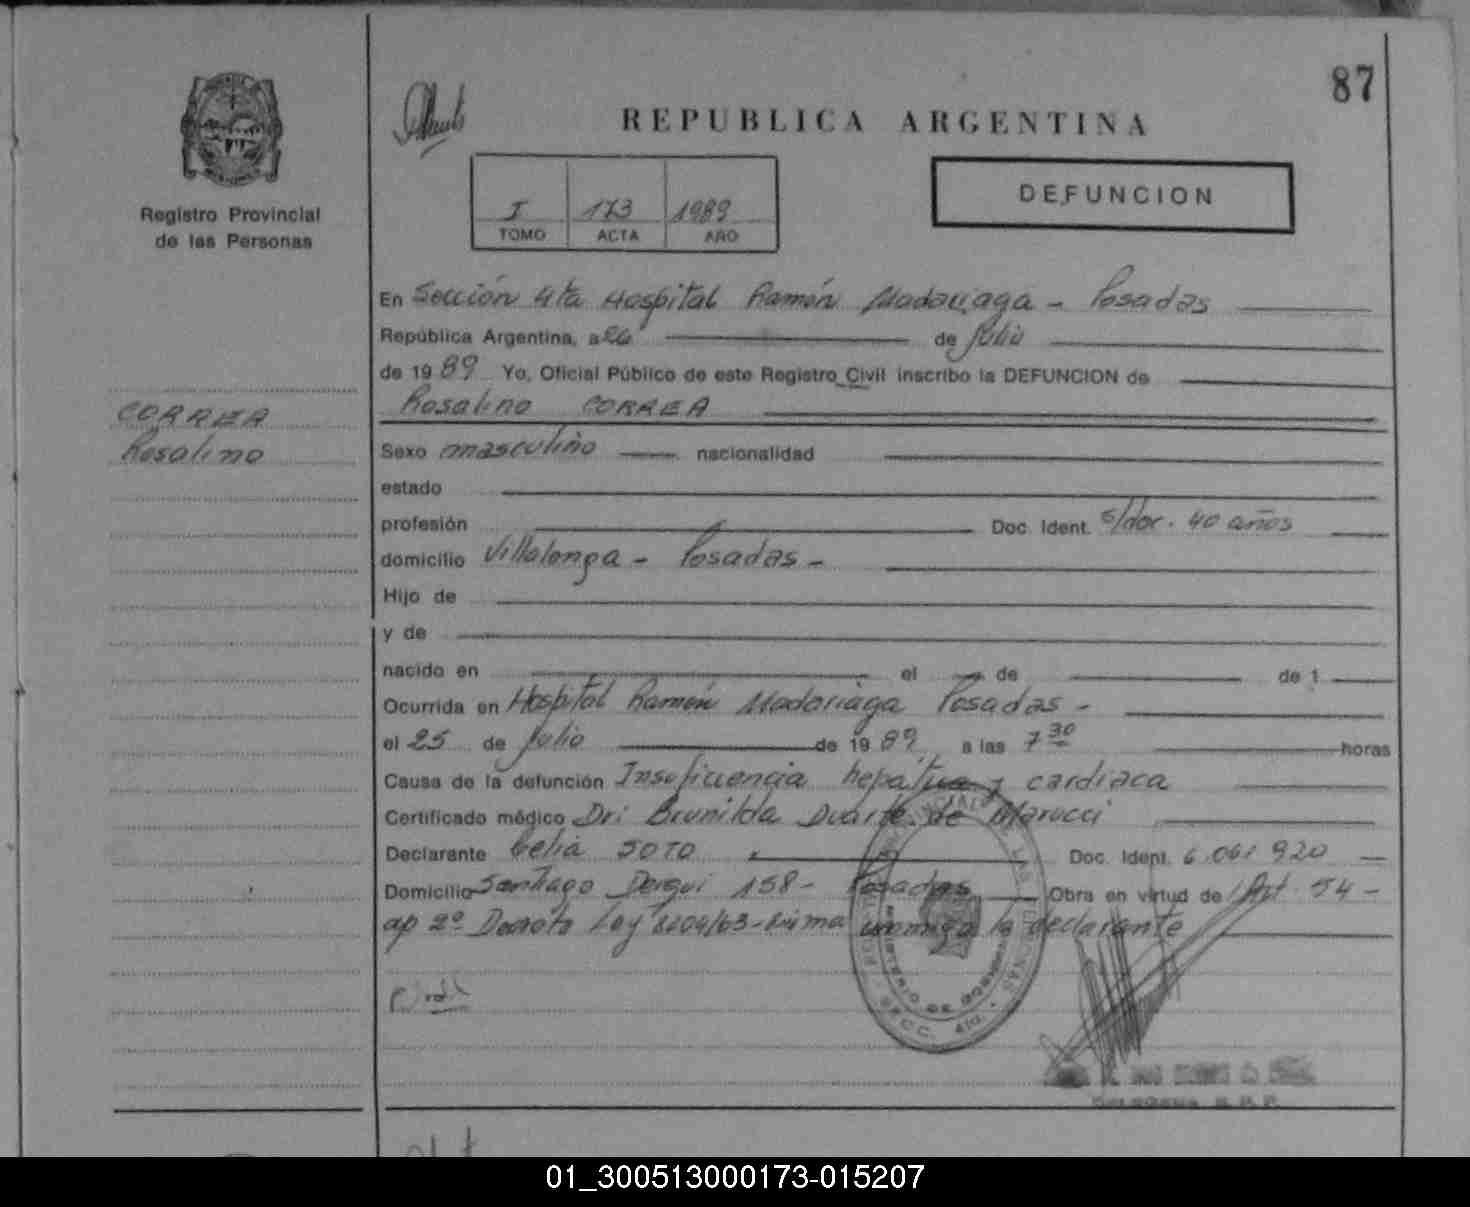 87
REPUBLICA ARGENTINA
DEFUNCION
Registro Provincial
de las Personas
I 173 1989
TOMO ACTA AÑO
En Sección 4ta Hospital Ramón Madariaga - Posadas
República Argentina, a 26 de Julio
de 1989 Yo, Oficial Público de este Registro Civil inscribo la DEFUNCION de
Rosalino CORREA
CORREA
Rosalino
Sexo masculino nacionalidad
estado
profesión Doc. Ident. s/doc. 40 años
domicilio Villalonga - Posadas -
Hijo de
y de
nacido en el de de 1
Ocurrida en Hospital Ramón Madariaga Posadas -
el 25 de Julio de 1989 a las 7 30 horas
Causa de la defunción Insuficiencia hepática y cardiaca
Certificado médico Dr. Brunilda Duarte de Marucci
Declarante Celia SOTO Doc. Ident. 6.061 920
Domicilio Santiago Derqui 158 - Posadas Obra en virtud de Art. 54 -
ap 2º Decreto Ley 8204/63 - firma conmigo la declarante
SECC. 4ta.
01_300513000173-015207